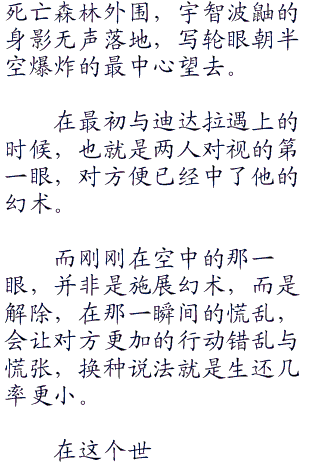 死亡森林外围，宇智波鼬的
身影无声落地，写轮眼朝半
空爆炸的最中心望去。
在最初与迪达拉遇上的
时候，也就是两人对视的第
一眼，对方便已经中了他的
幻术。
而刚刚在空中的那一
眼，并非是施展幻术，而是
解除，在那一瞬间的慌乱，
会让对方更加的行动错乱与
慌张，换种说法就是生还几
率更小。
在这个世